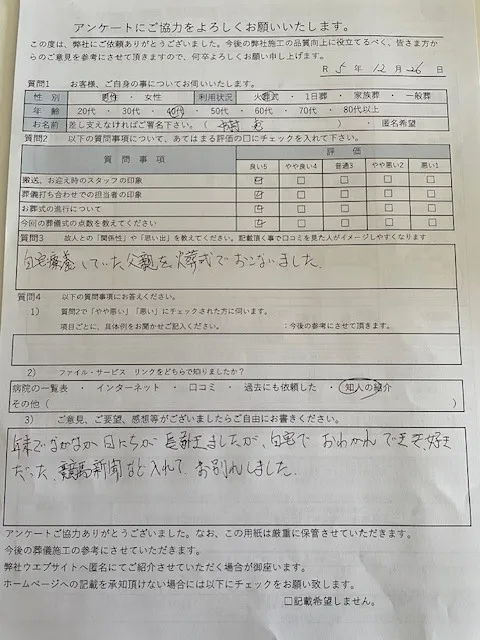 アンケートにご協力をよろしくお願いいたします。
この度は、弊社にご依頼ありがとうございました。今後の弊社施工の品質向上に役立てるべく、皆さま方か
らのご意見を参考にさせて頂きますので、何卒よろしくお願い申し上げます。
R 5 年 12 月 26 日
質問1 お客様、ご自身の事についてお伺いいたします。
性 別 男性 ・ 女性 利用状況 火葬式 ・ 1日葬 ・ 家族葬 ・ 一般葬
年 齢 20代 ・ 30代 ・ 40代 ・ 50代 ・ 60代 ・ 70代 ・ 80代以上
お名前 差し支えなければご署名下さい。( ) ・ 匿名希望
質問2 以下の質問事項について、あてはまる評価の口にチェックを入れて下さい。
質 問 事 項 評 価
良い5 やや良い4 普通3 やや悪い2 悪い1
搬送、お迎え時のスタッフの印象 ☑ □ □ □ □
葬儀打ち合わせでの担当者の印象 ☑ □ □ □ □
お葬式の進行について ☑ □ □ □ □
今回の葬儀式の点数を教えてください ☑ □ □ □ □
質問3 故人との「関係性」や「思い出」を教えてください。記載頂く事で口コミを見た人がイメージしやすくなります
自宅療養していた父親を火葬式でおこないました。
質問4 以下の質問事項にお答えください。
1) 質問2で「やや悪い」「悪い」にチェックされた方に伺います。
項目ごとに、具体例をお聞かせご記入ください。 :今後の参考にさせて頂きます。
2) ファイル・サービス リンクをどちらで知りましたか?
病院の一覧表 ・ インターネット ・ 口コミ ・ 過去にも依頼した ・ 知人の紹介
その他 ( )
3) ご意見、ご要望、感想等がございましたらご自由にお書きください。
年末でなかなか日にちが ましたが、自宅で おわかれ でき 好き
だった、競馬新聞など入れて、お別れしました。
アンケートご協力ありがとうございました。なお、この用紙は厳重に保管させていただきます。
今後の葬儀施工の参考にさせていただきます。
弊社ウエブサイトへ匿名にてご紹介させていただく場合が御座います。
ホームページへの記載を承知頂けない場合には以下にチェックをお願い致します。
□記載希望しません。